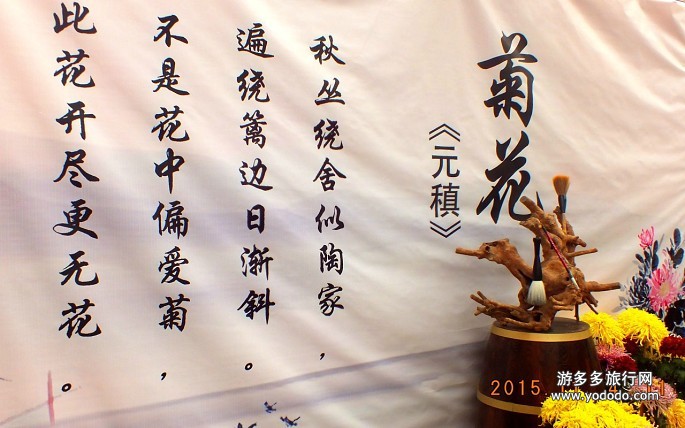 菊花
《元稹》
秋丛绕舍似陶家，
遍绕篱边日渐斜。
不是花中偏爱菊，
此花开尽更无花。
游多多旅行网
www.yododo.com